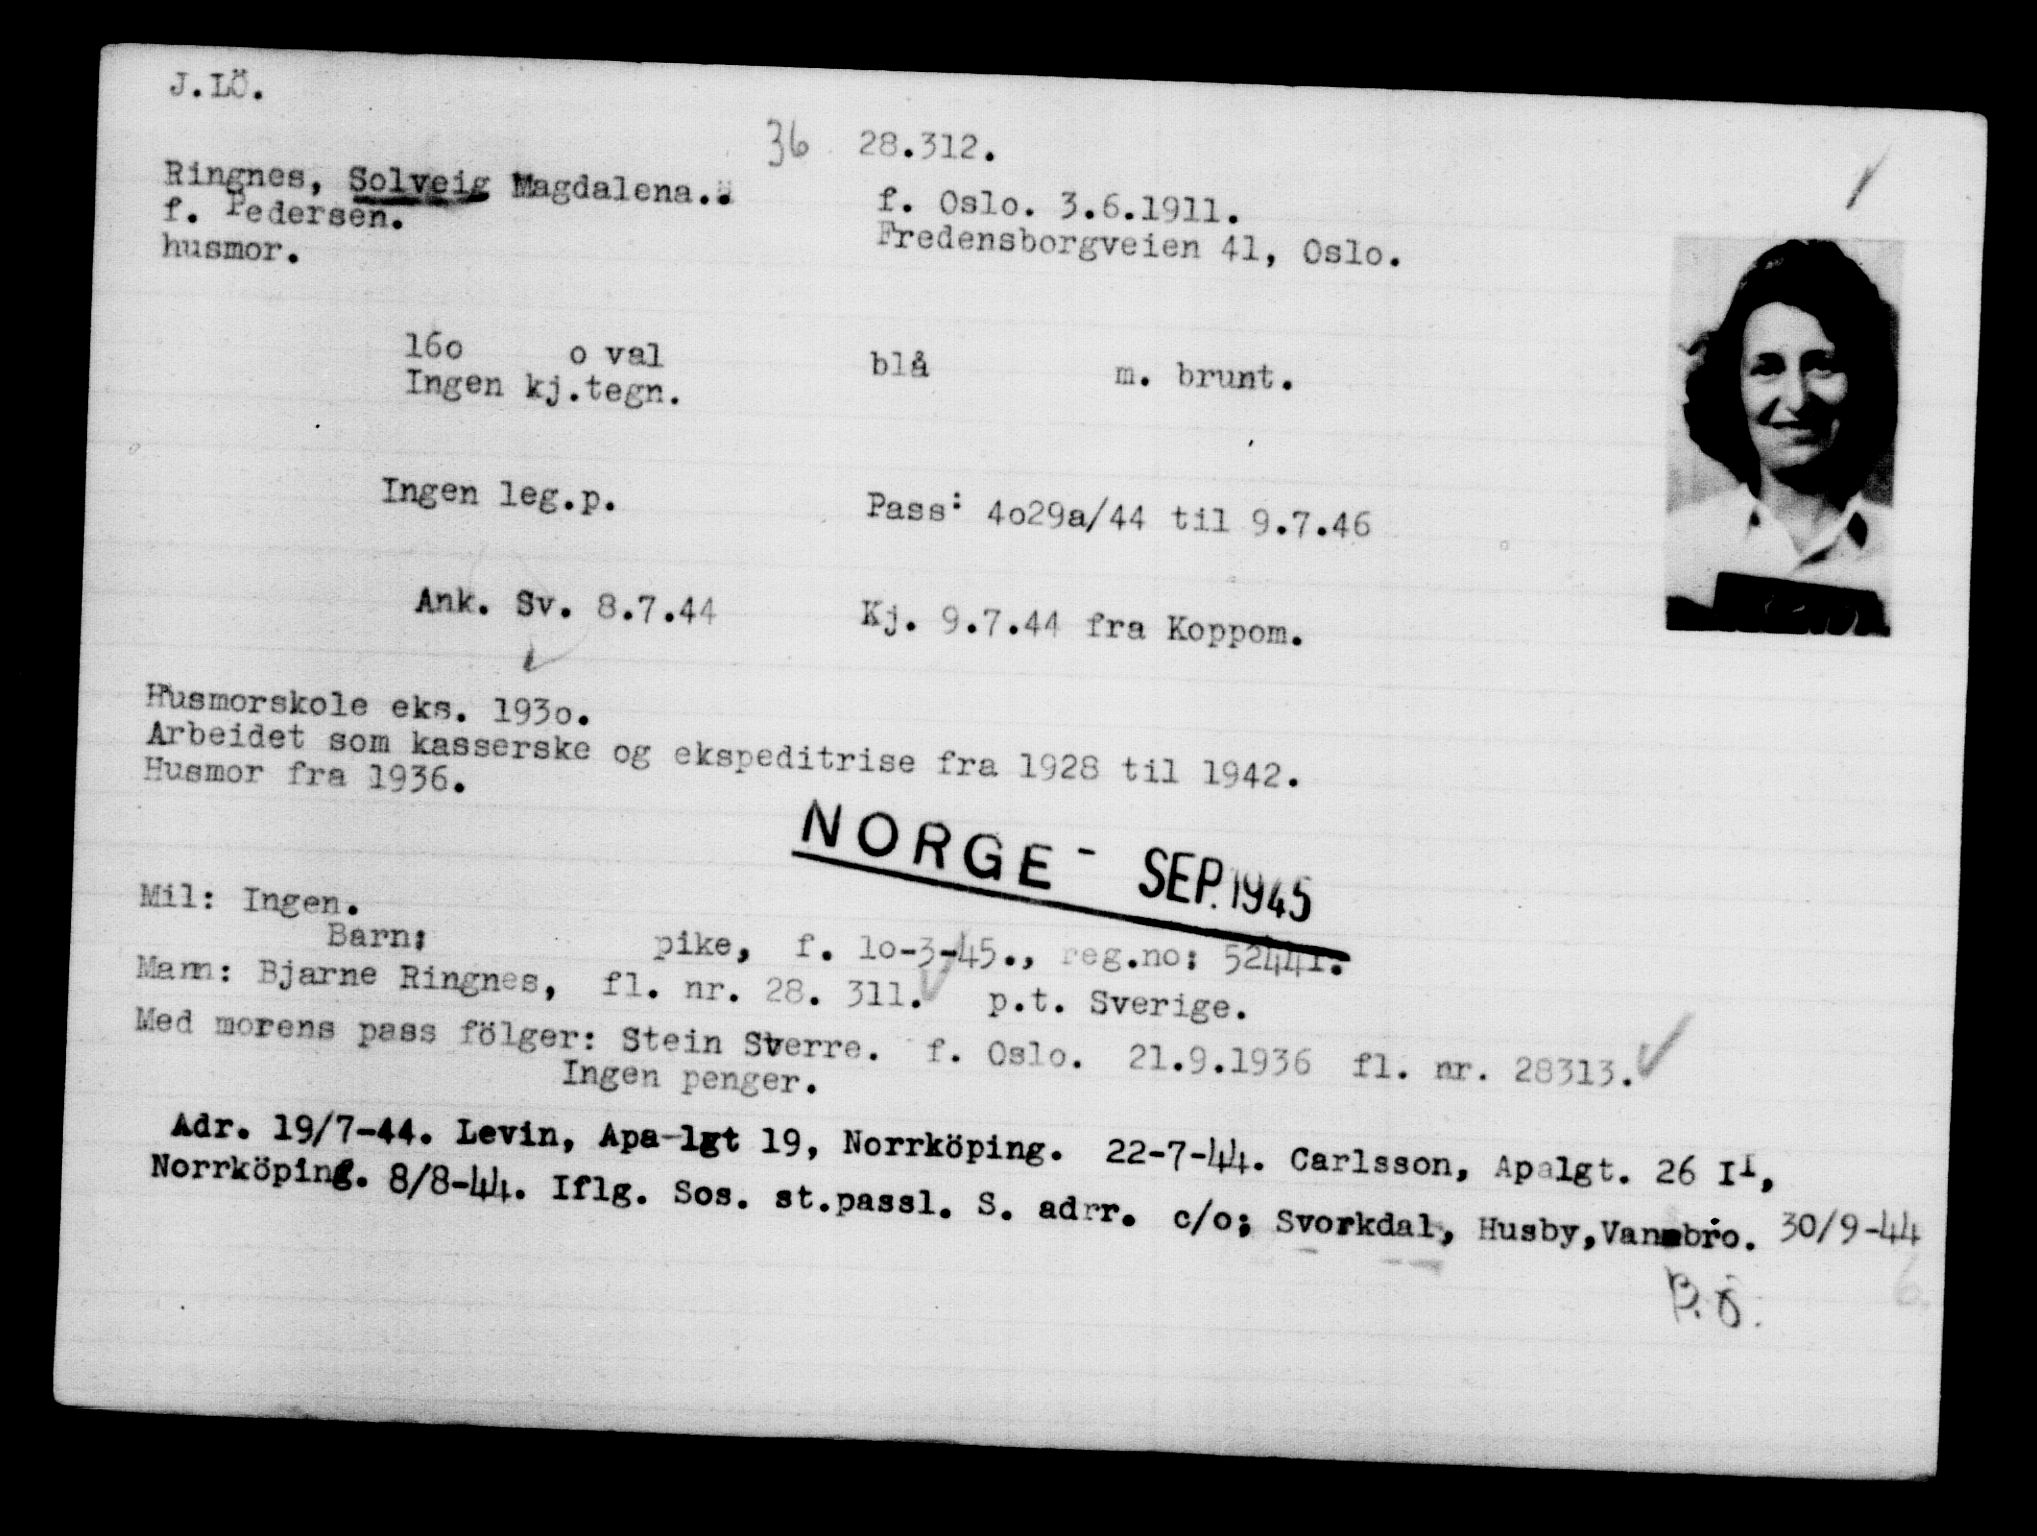 J.LÖ.
36 28.312.
Ringnes, Solveig Magdalena.
f. Pedersen.
husmor.
f. Oslo. 3.6.1911.
Fredensborgveien 41, Oslo.
16o o val blå m. brunt.
Ingen kj.tegn.
Ingen leg.p. Pass: 4o29a/44 til 9.7.46
Ank. Sv. 8.7.44 Kj. 9.7.44 fra Koppom.
Husmorskole eks. 193o.
Arbeidet som kasserske og ekspeditrise fra 1928 til 1942.
Husmor fra 1936.
NORGE - SEP. 1945
Mil: Ingen.
Barn: pike, f. 1o-3-45., reg.no: 52441.
Mann: Bjarne Ringnes, fl. nr. 28. 311. p.t. Sverige.
Med morens pass fölger: Stein Sverre. f. Oslo. 21.9.1936 fl. nr. 28313.
Ingen penger.
Adr. 19/7-44. Levin, Apa-lgt 19, Norrköping. 22-7-44. Carlsson, Apalgt. 26 II,
Norrköping. 8/8-44. Iflg. Sos. st.passl. S. adrr. c/o; Svorkdal, Husby, Vansbro. 30/9-44
B.Ö.